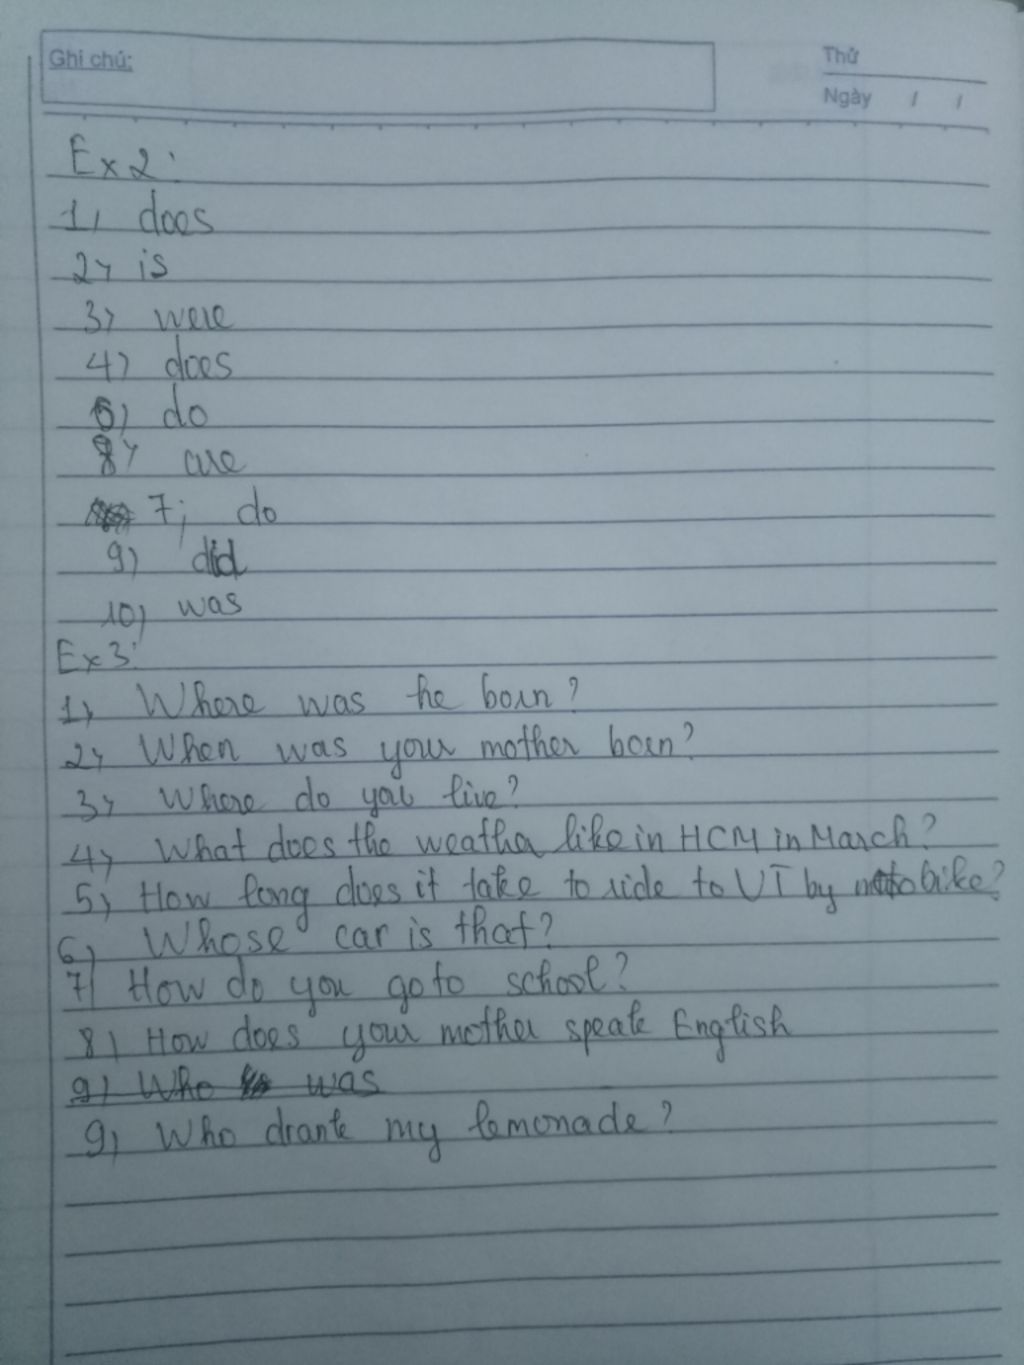 Ghi chú:
Thứ
Ngày / /
Ex 2:
1, does
2, is
3, were
4) does
6) do
8, are
7; do
9) did
10, was
Ex 3:
1, Where was he born?
2, When was your mother born?
3, Where do you live?
4, What does the weather like in HCM in March?
5, How long does it take to ride to VT by motobike?
6, Whose car is that?
7) How do you go to school?
8) How does your mother speak English
9) Who was
9) Who drank my lemonade?